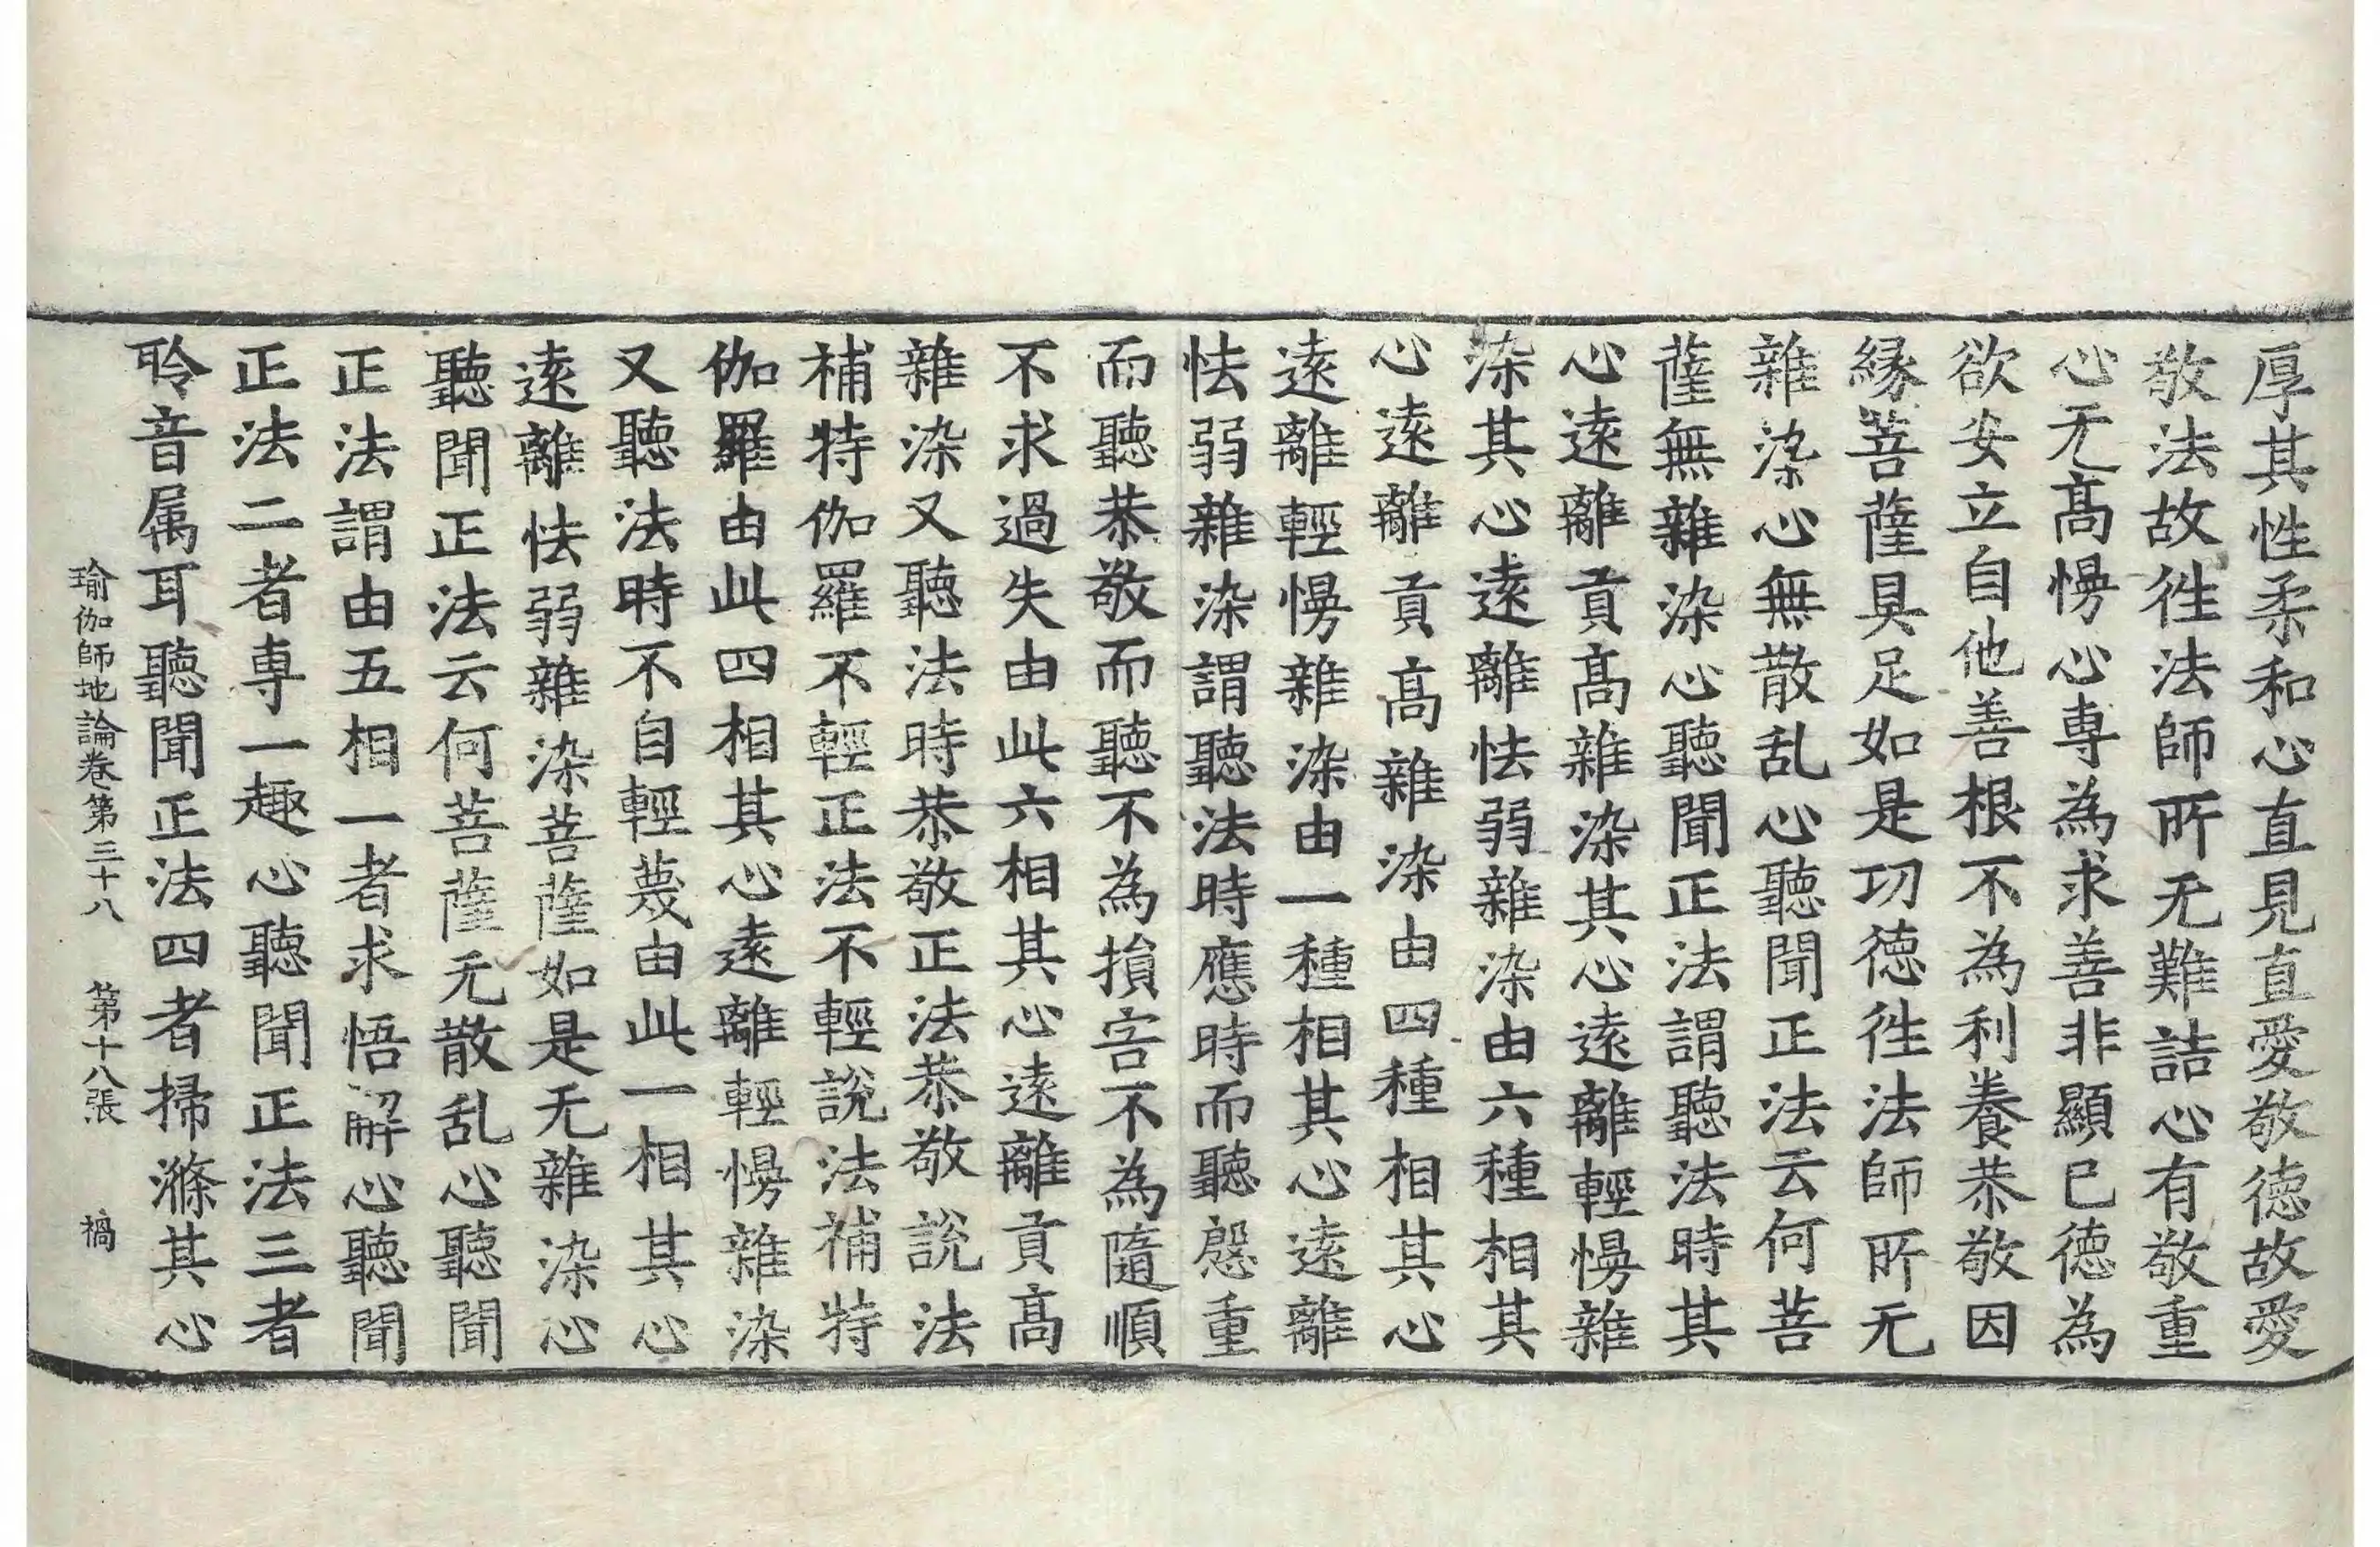 厚其性柔和心直見直愛敬徳故愛
敬法故徃法師所无難詰心有敬重
心无髙慢心専為求善非顯已徳為
欲安立自他善根不為利養恭敬因
縁菩薩具足如是功徳徃法師所无
雜染心無散乱心聽聞正法云何菩
薩無雜染心聽聞正法謂聽法時其
心遠離貢髙雜染其心遠離輕慢雜
染其心遠離怯弱雜染由六種相其
心遠離貢髙雜染由四種相其心
遠離輕慢雜染由一種相其心遠離
怯弱雜染謂聽法時應時而聽慇重
而聽恭敬而聽不為損害不為隨順
不求過失由此六相其心遠離貢髙
雜染又聽法時恭敬正法恭敬說法
補特伽羅不輕正法不輕說法補特
伽羅由此四相其心遠離輕慢雜染
又聽法時不自輕蔑由此一相其心
遠離怯弱雜染菩薩如是无雜染心
聽聞正法云何菩薩无散乱心聽聞
正法謂由五相一者求悟解心聽聞
正法二者専一趣心聽聞正法三者
聆音属耳聽聞正法四者掃滌其心
瑜伽師地論卷第三十八 第十八張 禍